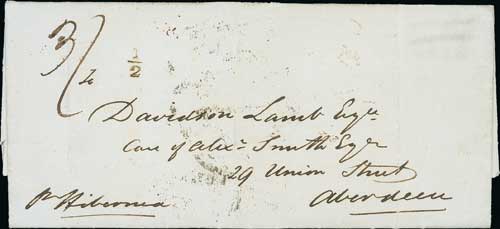 3/
½
Davidson Lamb Esqre
Care of Alexr Smith Esqr
29 Union Street
Aberdeen
pr Hibernia